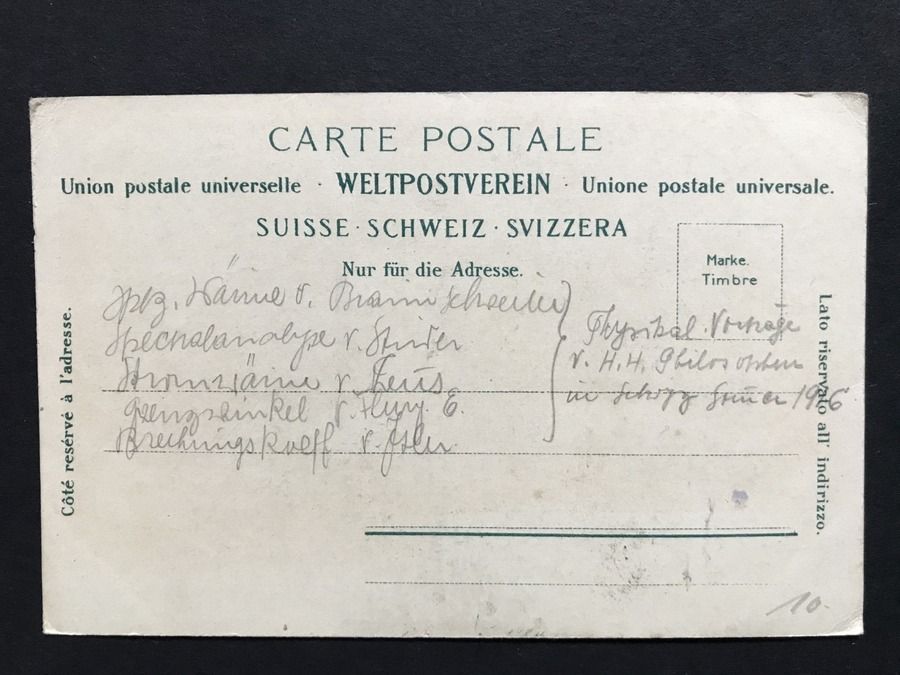 CARTE POSTALE
Union postale universelle · WELTPOSTVEREIN · Unione postale universale.
SUISSE · SCHWEIZ · SVIZZERA
Nur für die Adresse.
Marke.
Timbre
Côté resérvé à l'adresse.
Lato riservato all' indirizzo.
Spez. Wärme v.
Spectralanalyse v. Studer
Stromwärme v.
Grenzwinkel v. E.
Brechungskoeff v.
Physikal. Vorträge
v. H. H. Philosophen
in 1906
10.